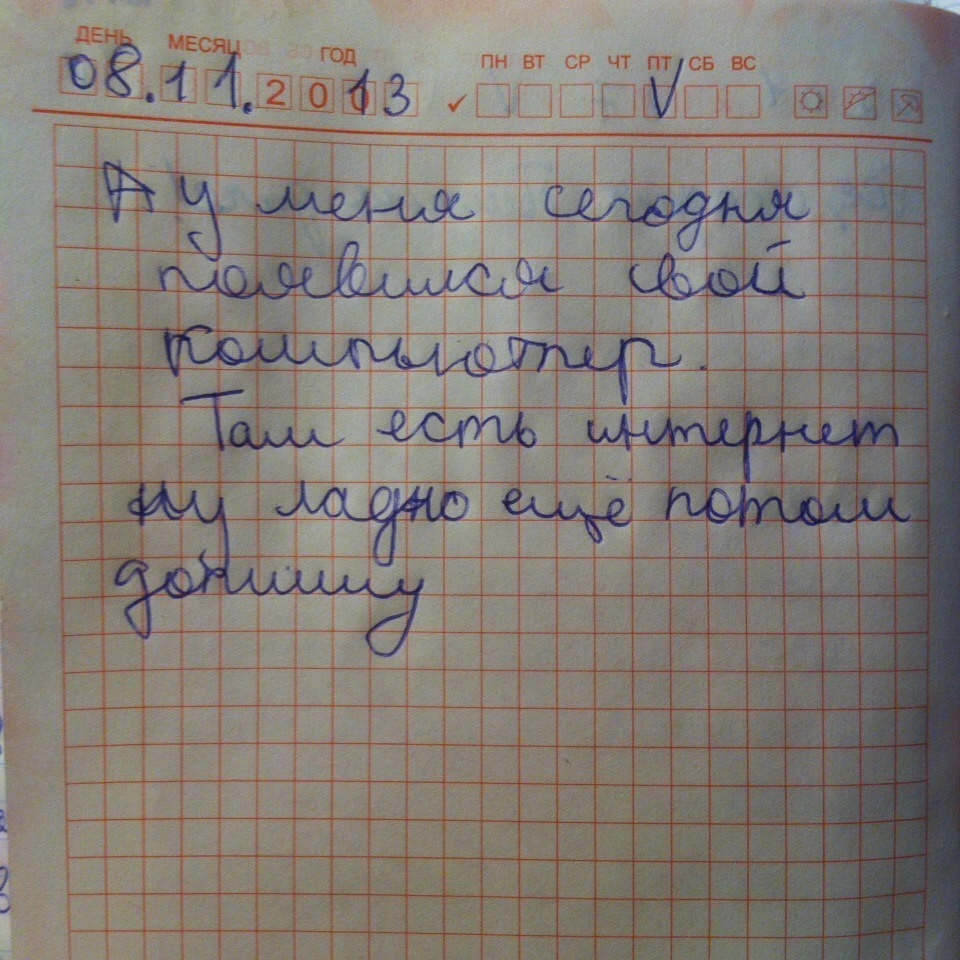 ДЕНЬ МЕСЯЦ ГОД ПН ВТ СР ЧТ ПТ СБ ВС
08.11.2013 ✓ V
А у меня сегодня
появился свой
компьютер.
Там есть интернет
ну ладно ещё потом
допишу